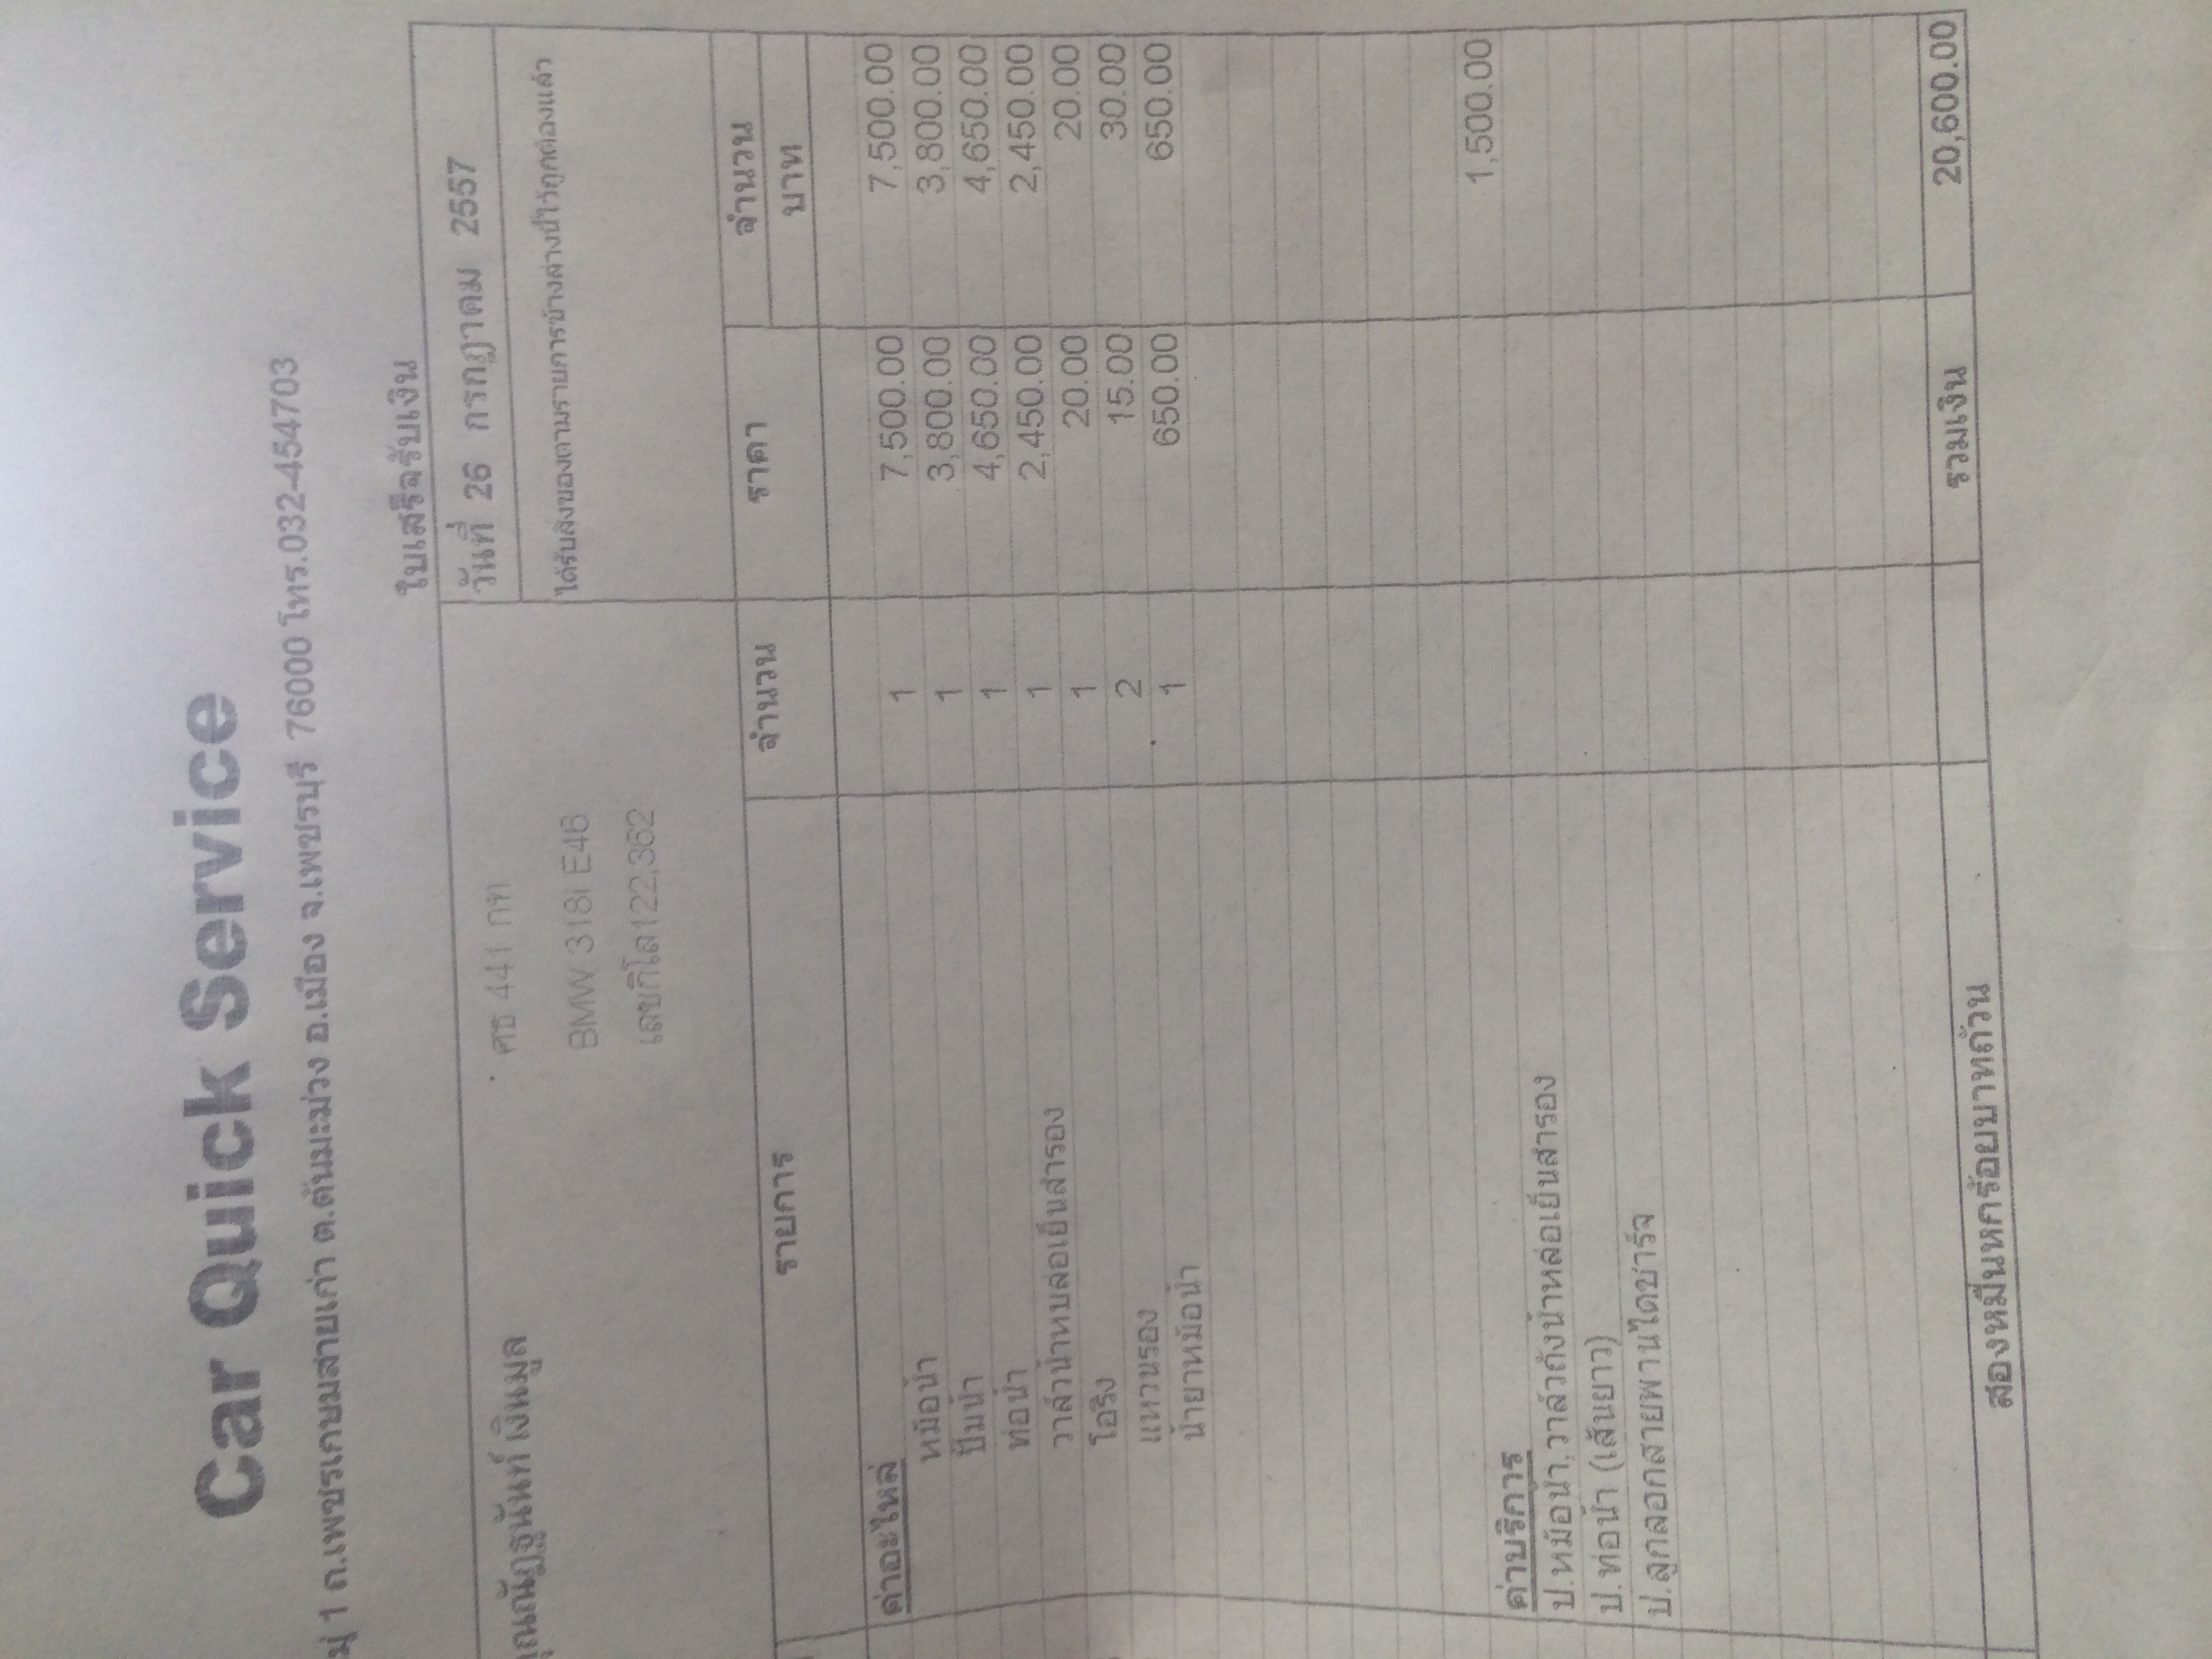 Car Quick Service
1 ถ.เพชรเกษมสายเก่า ต.ต้นมะม่วง อ.เมือง จ.เพชรบุรี 76000 โทร.032-454703
ใบเสร็จรับเงิน
คุณณัฏฐนันท์ เงินมูล ศธ 441 กท วันที่ 26 กรกฎาคม 2557
BMW 318I E46 ได้รับสิ่งของตามรายการข้างล่างนี้ไว้ถูกต้องแล้ว
เลขกิโล122,362
รายการ จำนวน ราคา จำนวน
บาท
ค่าอะไหล่
หม้อน้ำ 1 7,500.00 7,500.00
ปั๊มน้ำ 1 3,800.00 3,800.00
ท่อน้ำ 1 4,650.00 4,650.00
วาล์วน้ำหบล่อเย็นสำรอง 1 2,450.00 2,450.00
โอริง 1 20.00 20.00
แหวนรอง 2 15.00 30.00
น้ำยาหม้อน้ำ 1 650.00 650.00
ค่าบริการ 1,500.00
ป.หม้อน้ำ,วาล์วถังน้ำหล่อเย็นสำรอง
ป.ท่อน้ำ (เส้นยาว)
ป.ลูกลอกสายพานไดชาร์จ
สองหมื่นหกร้อยบาทถ้วน รวมเงิน 20,600.00